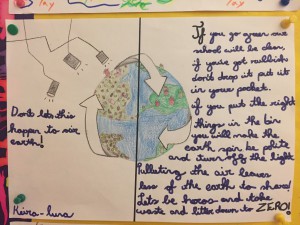 If you go green our
school will be clean,
if you've got rubbish
don't drop it put it
in your pocket.
if you put the right
things in the bin
you will make the
earth spin, be polite
and turn off the light
Polluting the air leaves
less of the earth to share!
Lets be heros and take
waste and litter down to ZERO!
Dont lets this
happen to our
earth!
Keira-Luna